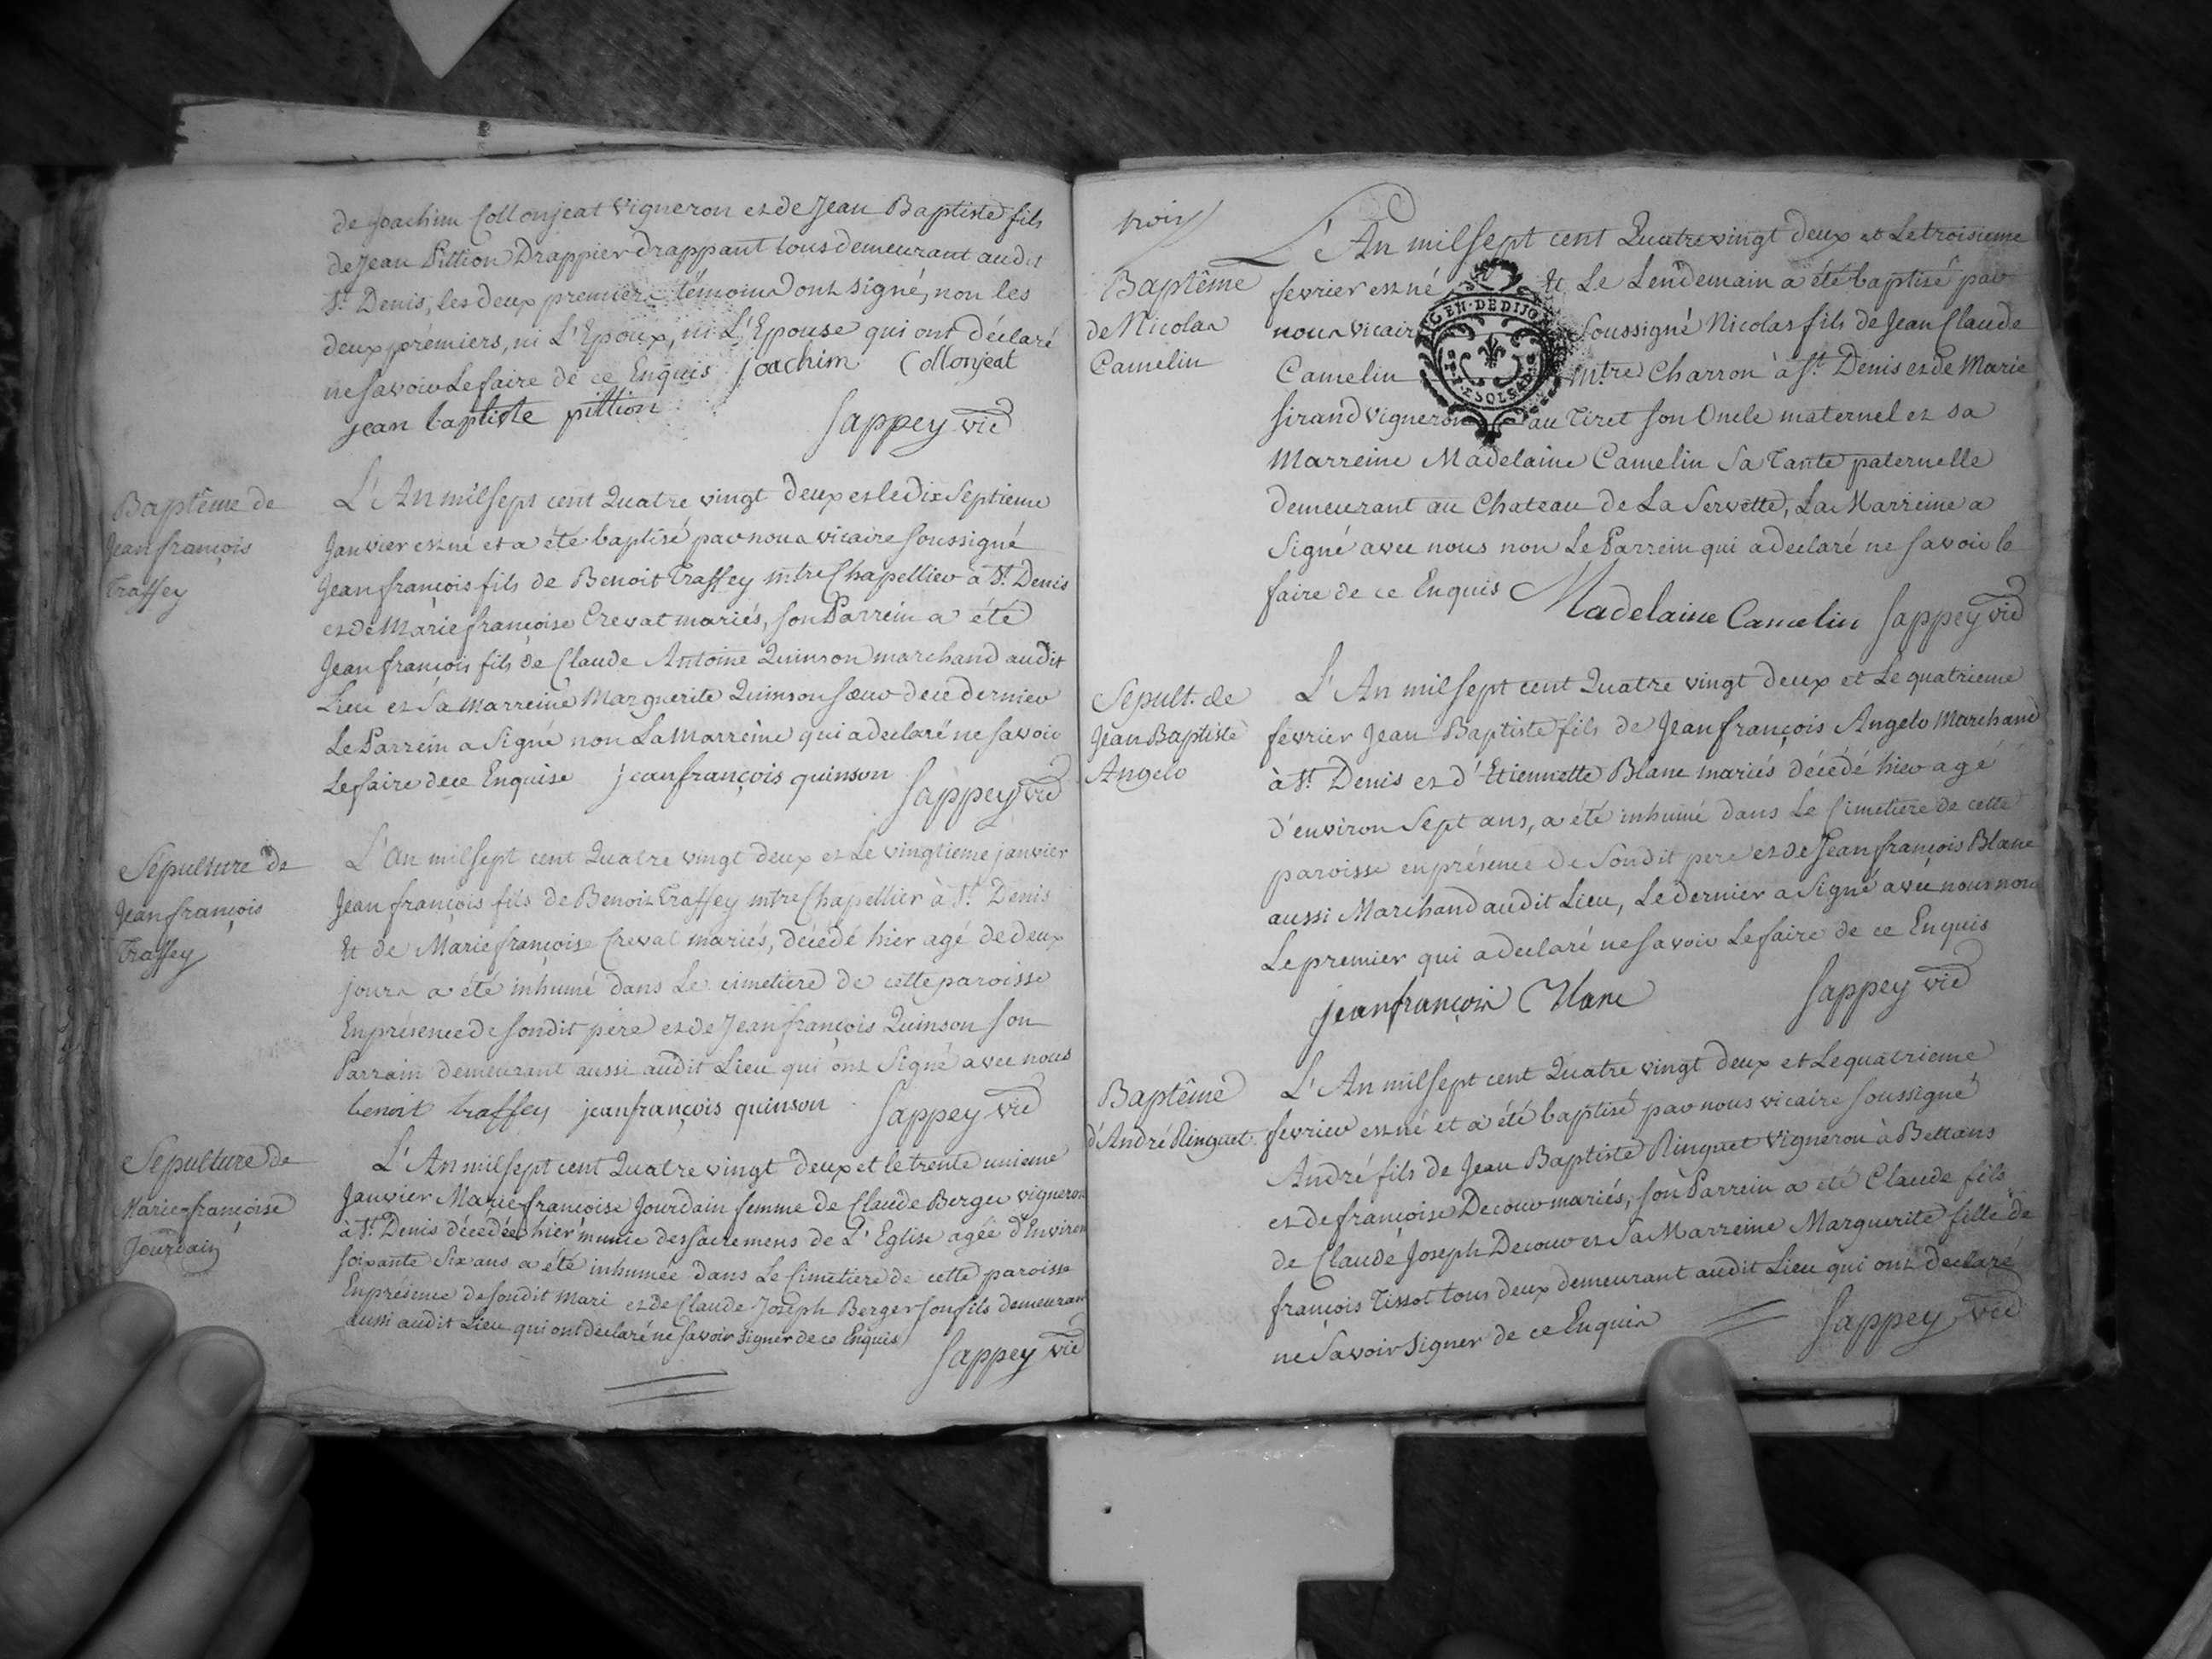 de Joachim Collonjeat vigneron et de Jean Baptiste fils
de Jean Pittion Drappier drappant tous demeurant audit
St. Denis, les deux premiers témoins ont signé, non les
deux prémiers, ni L'Epoux, ni L'Epouse qui ont déclaré
ne savoir Le faire de ce Enquis joachim Collonjeat
jean baptiste pittion
Sappey vic
Baptême de
Jean françois
Traffey
L'An mil sept cent Quatre vingt deux et le dix Septieme
Janvier est né et a été baptisé par nous vicaire soussigné
Jean françois fils de Benoit Traffey mtre Chapellier à St. Denis
et de Marie françoise Crevat mariés, son Parrein a été
Jean françois fils de Claude Antoine Quinson marchand audit
Lieu et Sa Marreine Marguerite Quinson sœur de ce dernier
Le Parrein a Signé non La Marreine qui a declaré ne savoir
Le faire de ce Enquise jean françois quinson
Sappey vic
Sepulture de
Jean françois
Traffey
L'An mil sept cent Quatre vingt deux et Le vingtieme janvier
Jean françois fils de Benoit Traffey mtre Chapellier à St. Denis
Et de Marie françoise Crevat mariés, décédé hier agé de deux
jours a été inhumé dans Le cimetiere de cette paroisse
En présence de sondit père et de Jean françois Quinson son
Parrain demeurant aussi audit Lieu qui ont Signé avec nous
benoit traffey jean françois quinson Sappey vic
Sepulture de
Marie-françoise
Jourdain
L'An mil sept cent Quatre vingt deux et le trente unieme
Janvier Marie françoise Jourdain femme de Claude Berger vigneron
à St. Denis décédée hier munie des sacremens de L'Eglise agée d'Environ
soixante Six ans a été inhumée dans Le Cimetiere de cette paroisse
En présence de sondit mari et de Claude Joseph Berger son fils demeurant
aussi audit Lieu qui ont déclaré ne savoir signer de ce Enquis
Sappey vic
L'An mil sept cent Quatre vingt deux et Le troisieme
Baptême
de Nicolas
Camelin
fevrier est né Et Le Lendemain a été baptisé par
nous vicair soussigné Nicolas fils de Jean Claude
Camelin Mtre Charron à St. Denis et de Marie
Sirand vigneron au Tiret son Oncle maternel et sa
GEN. DE DIJON
Marreine Madelaine Camelin Sa Tante paternelle
demeurant au Chateau de La Servette, La Marreine a
Signé avec nous non Le Parrein qui a declaré ne savoir le
faire de ce Enquis Madelaine Camelin Sappey vic
Sepult. de
Jean Baptiste
Angelo
L'An mil sept cent Quatre vingt deux et Le quatrieme
fevrier Jean Baptiste fils de Jean françois Angelo Marchand
à St. Denis et d'Etiennette Blanc mariés décédé hier agé
d'environ Sept ans, a été inhumé dans Le Cimetiere de cette
paroisse en présence de Sondit pere et de Jean françois Blanc
aussi Marchand audit Lieu, Le dernier a Signé avec nous non
Le premier qui a declaré ne savoir Le faire de ce Enquis
jean françois Blanc Sappey vic
Baptême
d'André Ringuet
L'An mil sept cent Quatre vingt deux et Le quatrieme
fevrier est né et a été baptisé par nous vicaire soussigné
André fils de Jean Baptiste Ringuet vigneron à Bettans
et de françoise Decour mariés, son Parrein a été Claude fils
de Claude Joseph Decour et Sa Marreine Marguerite fille de
françois Tissot tous deux demeurant audit Lieu qui ont declaré
ne Savoir Signer de ce Enquis Sappey vic